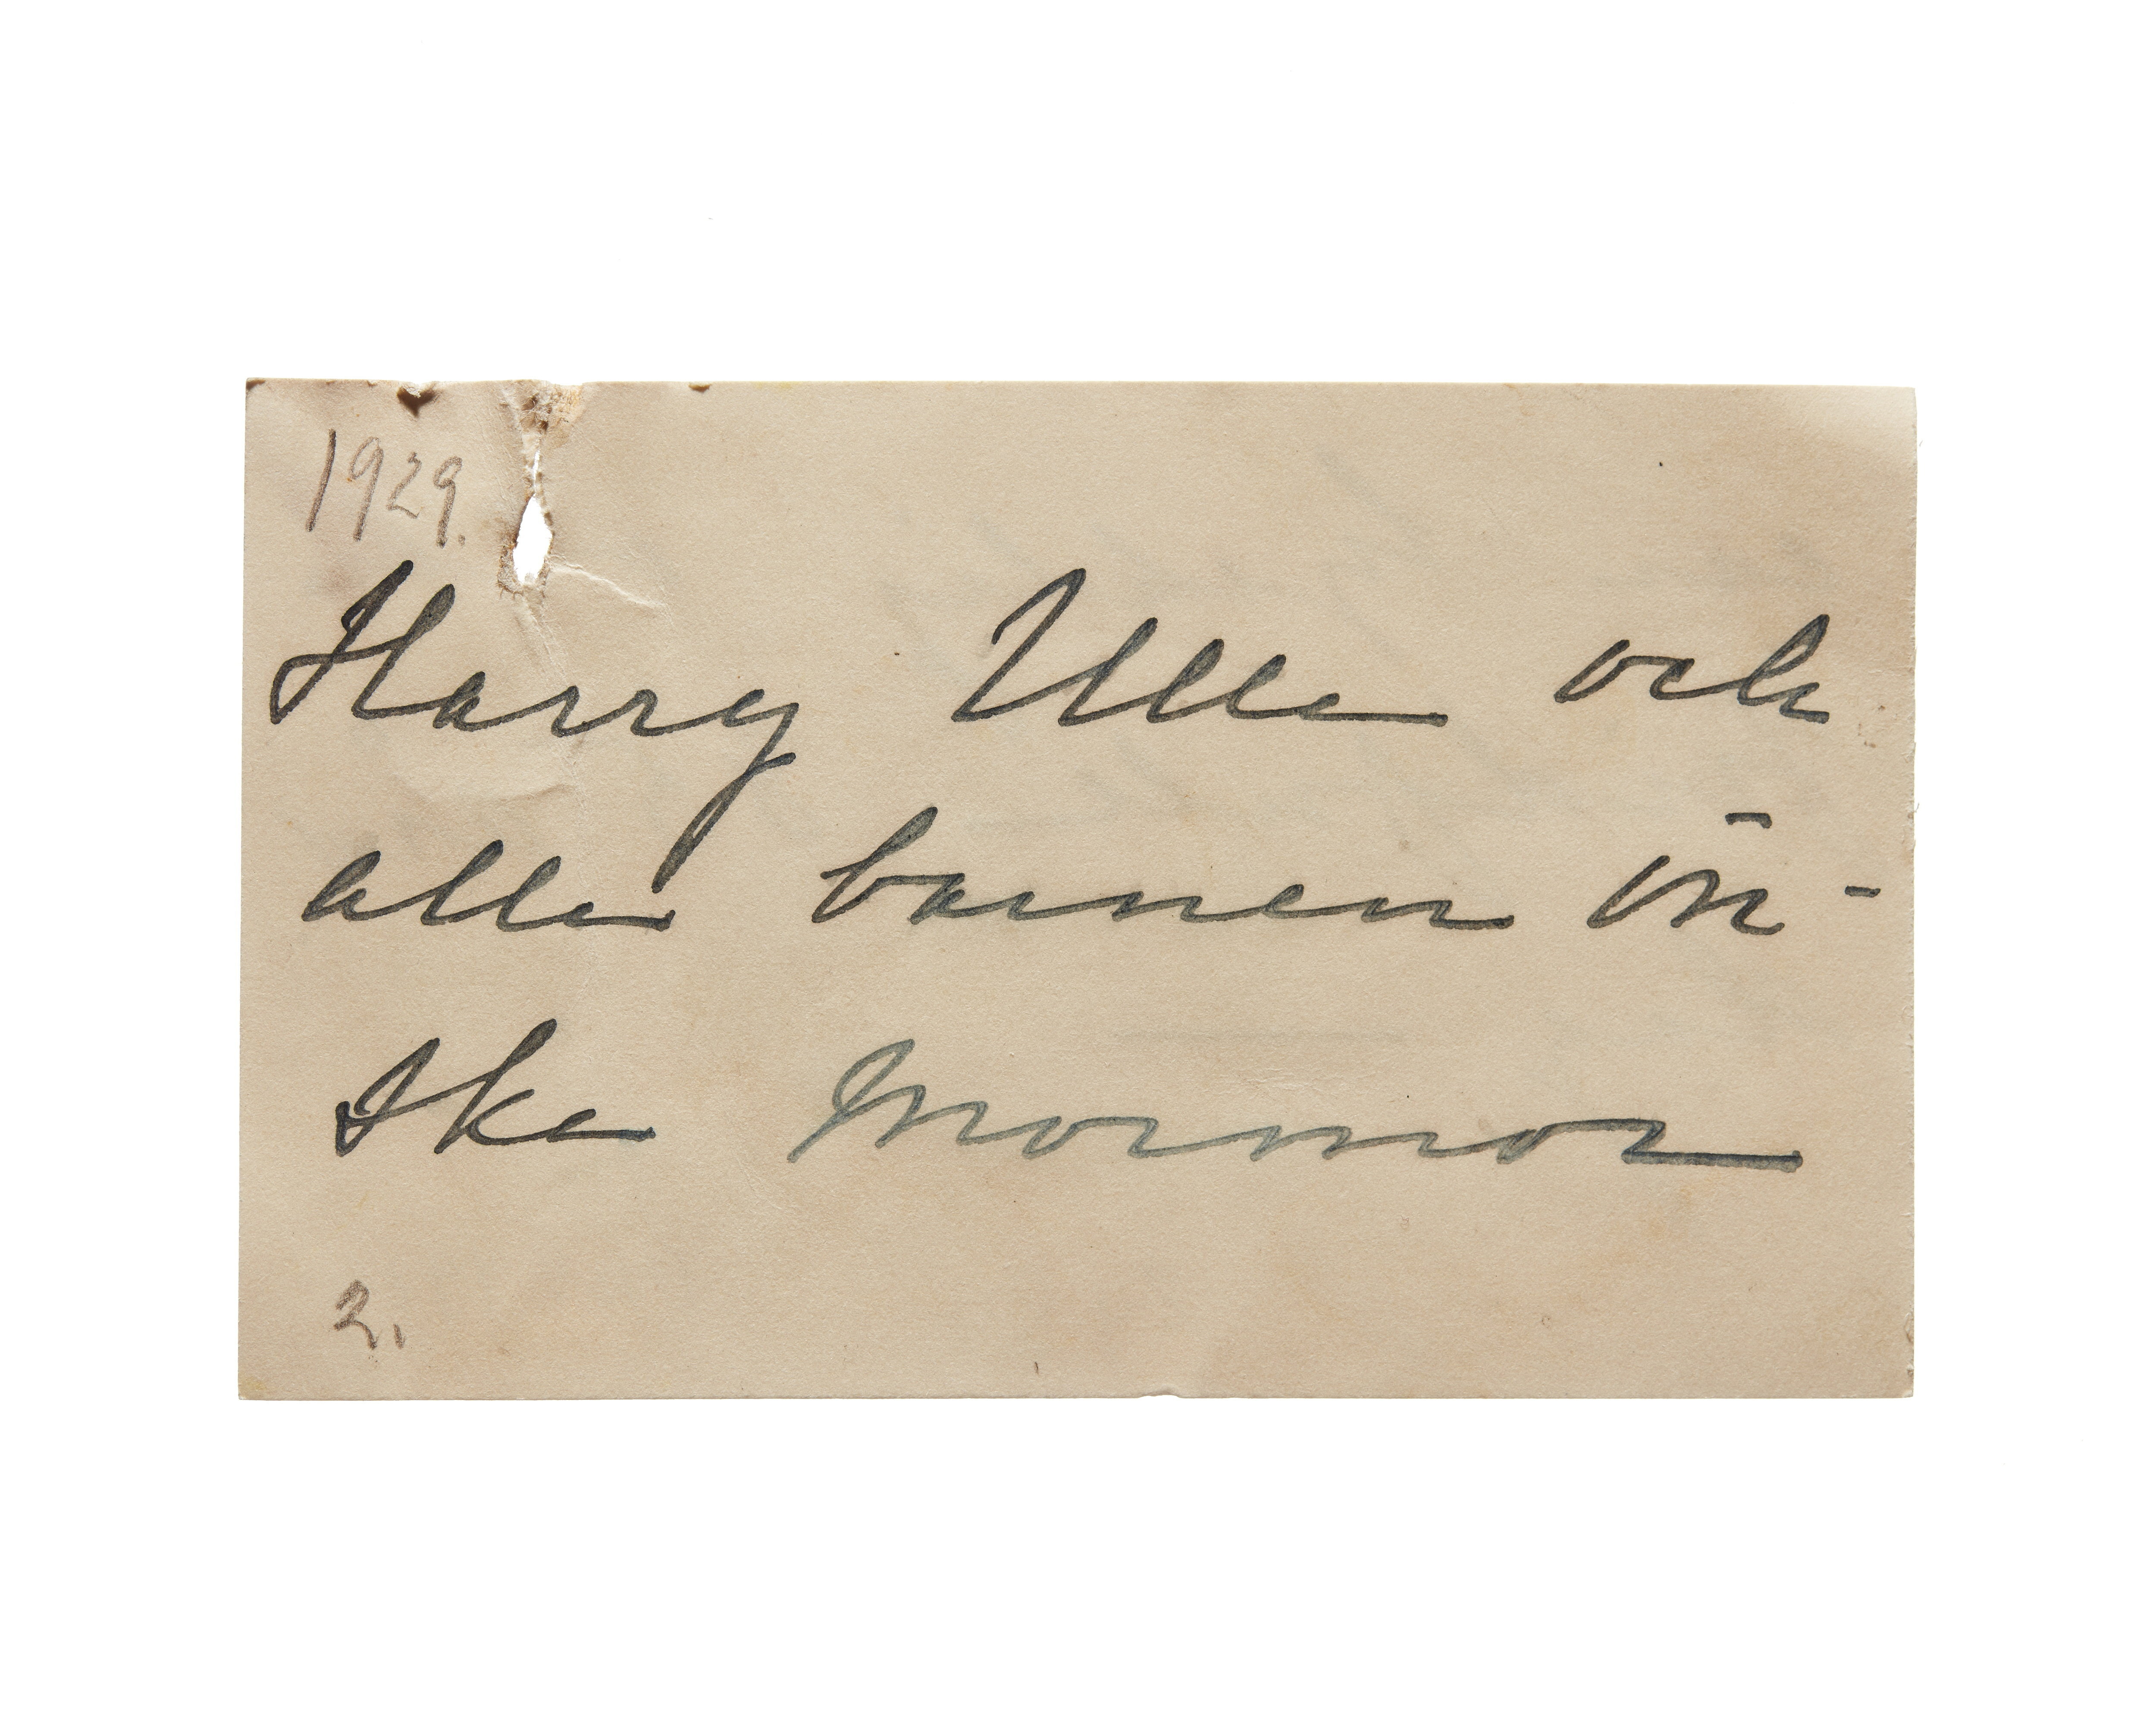 1929.
Harry Ulla och
alla barnen ön-
ska Mormor
2.